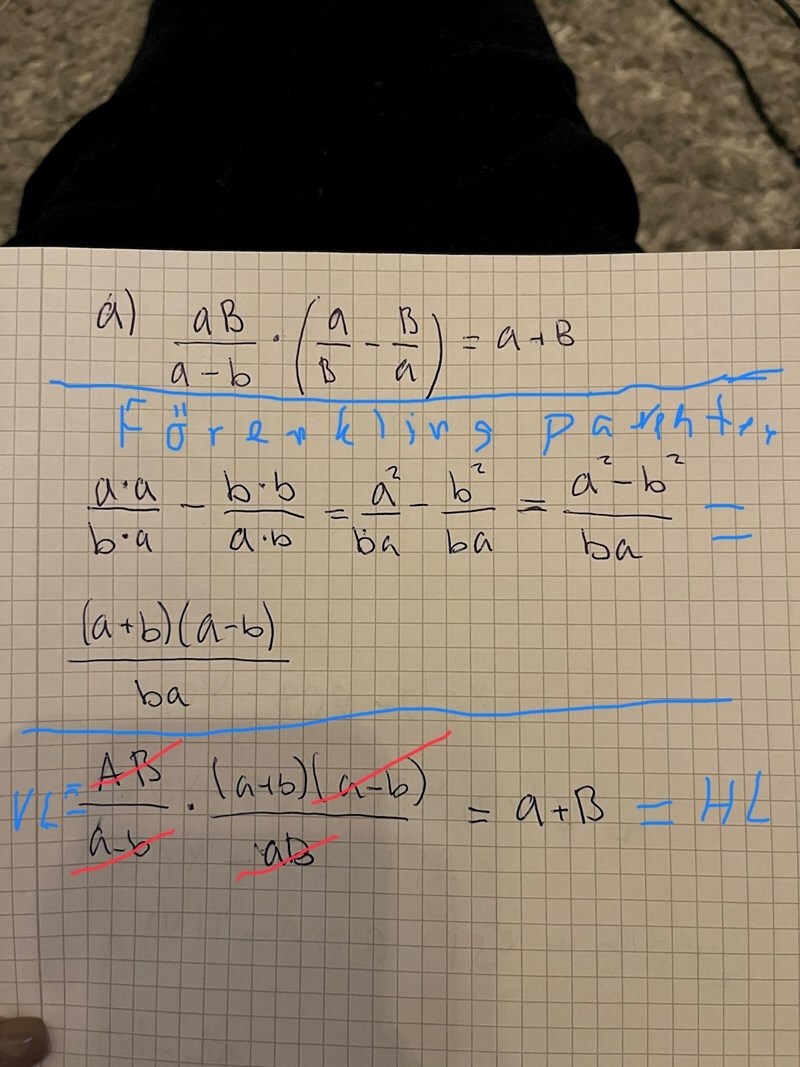 a) aB/(a-b) · (a/B - B/a) = a+B
Förenkling parhte,
a·a/b·a - b·b/a·b = a²/ba - b²/ba = (a²-b²)/ba =
(a+b)(a-b)/ba
VL = AB/(a-b) · (a+b)(a-b)/aB = a+B = HL